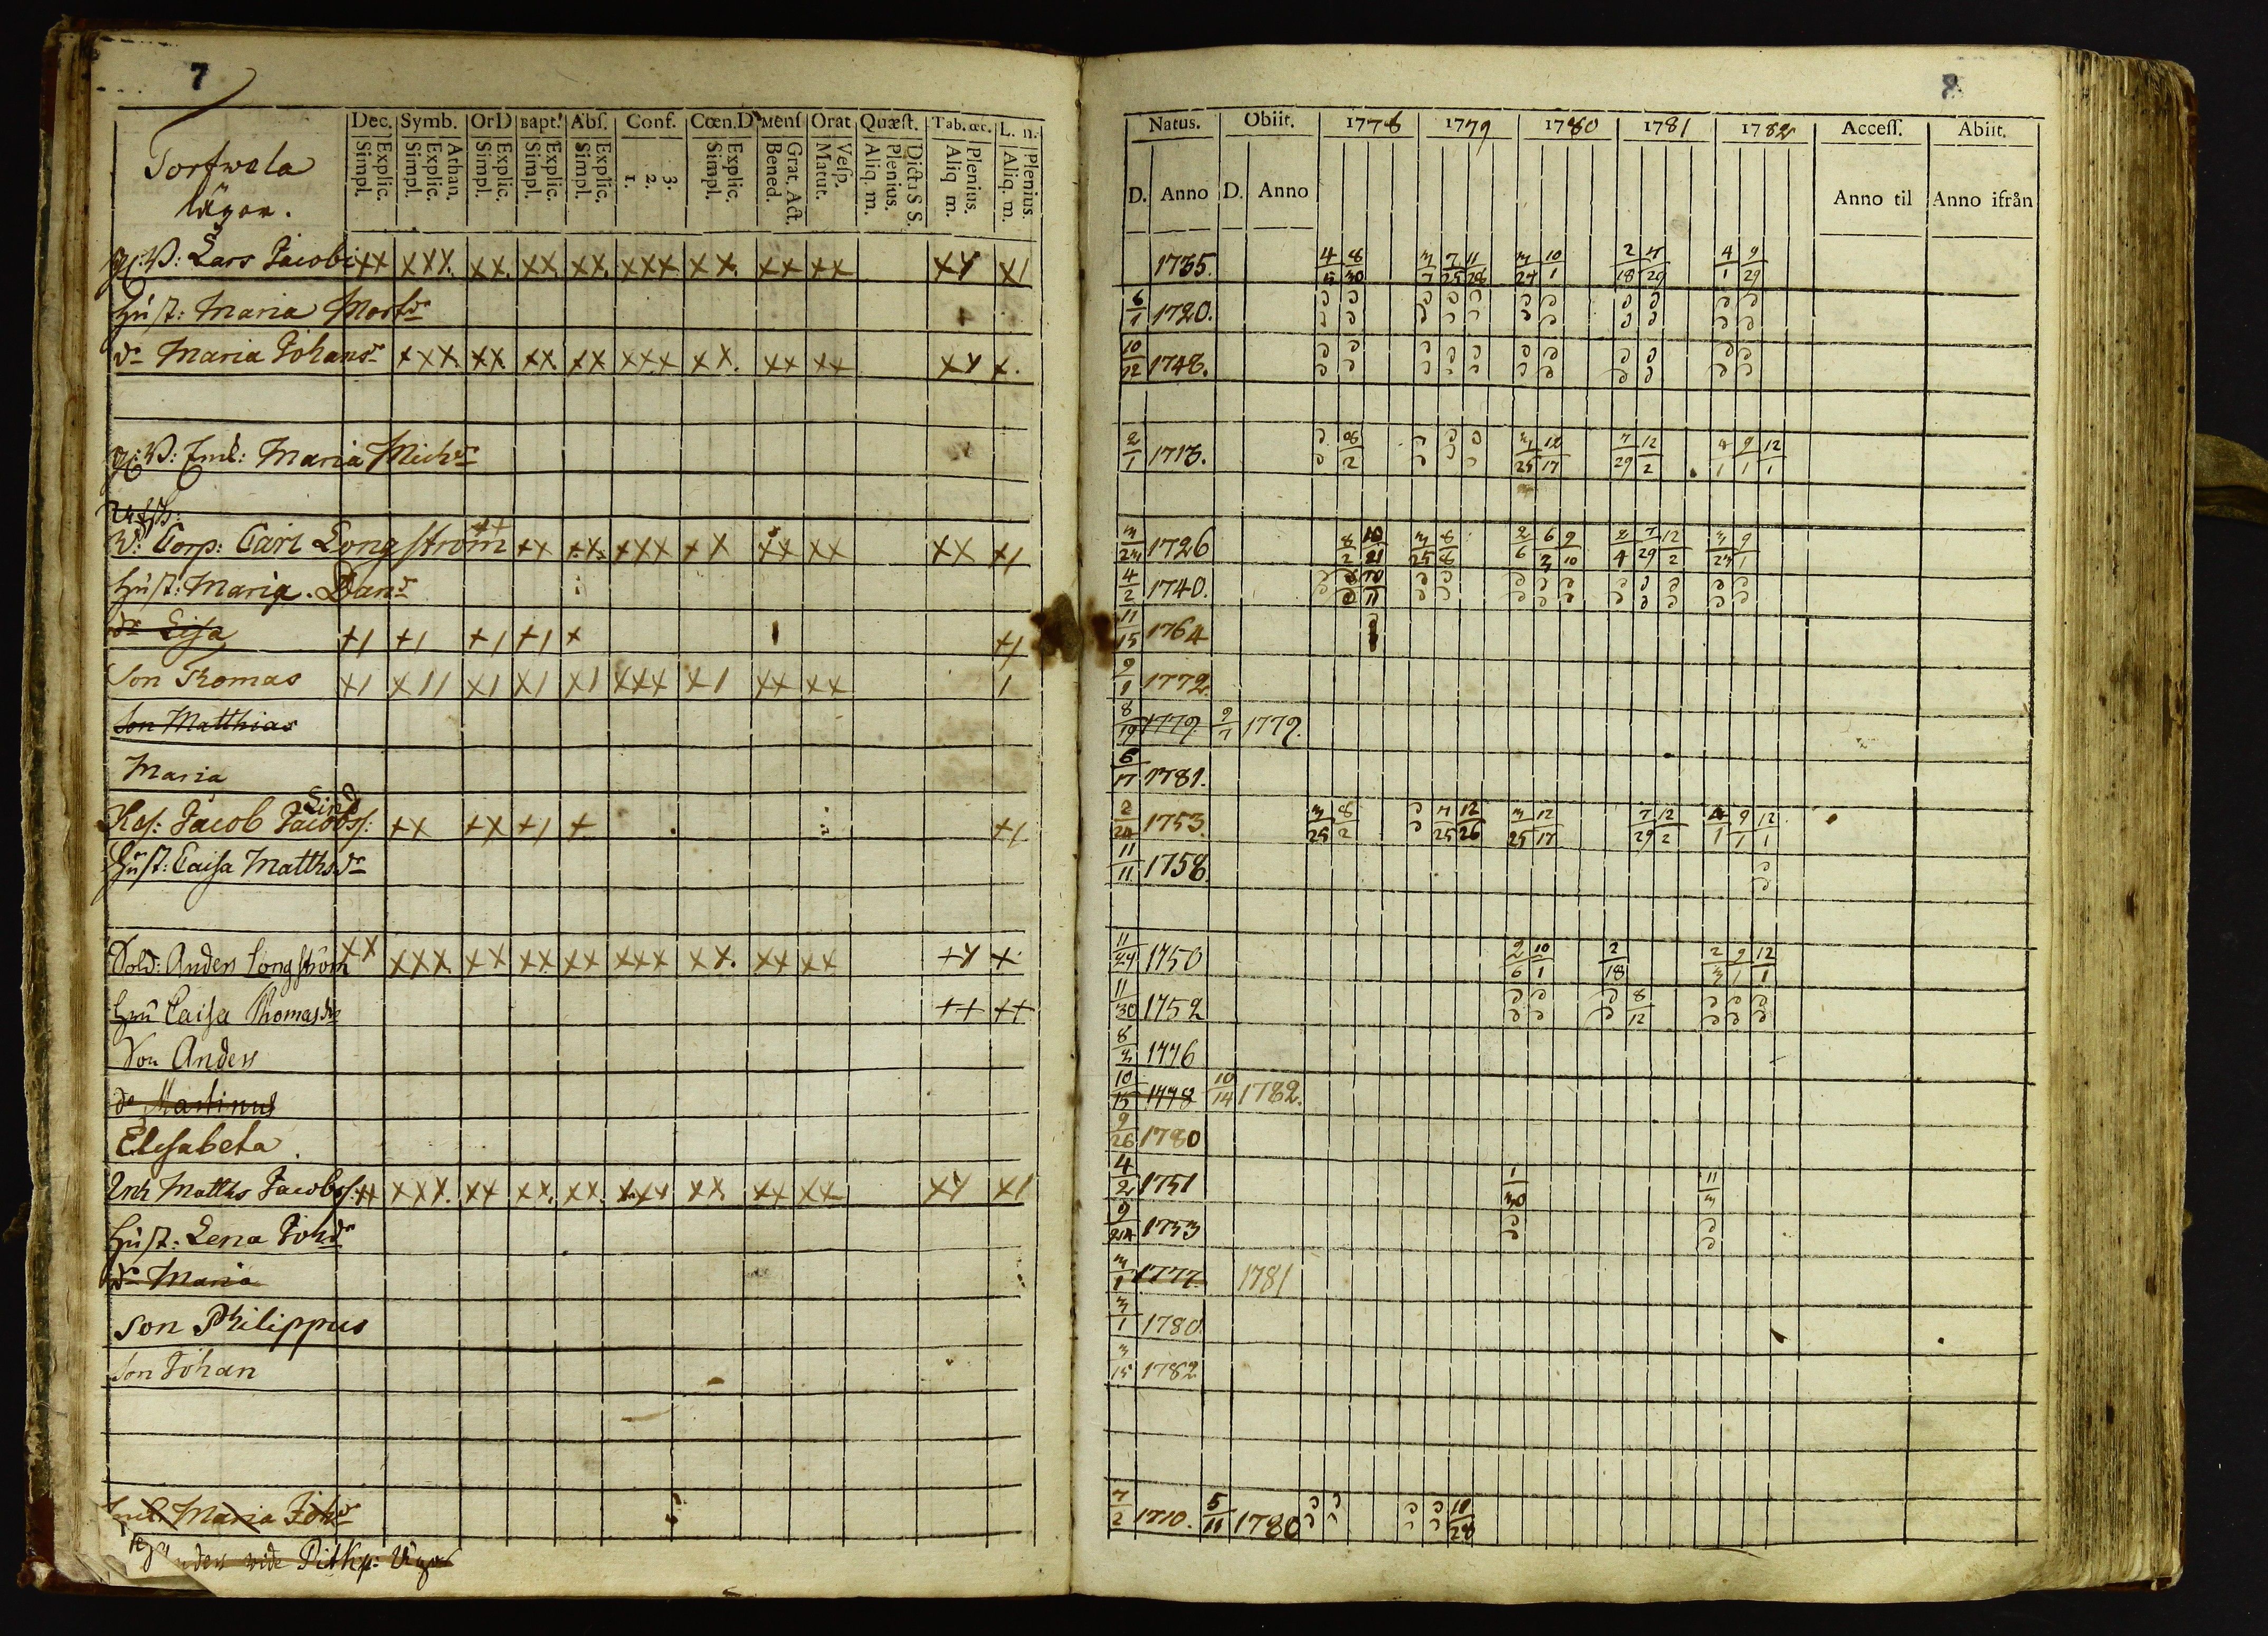 7
Torfwela
Dec. Symb. OrD Bapt. Abſ. Conf. Cœn.D Menſ Orat Quæſt. Tab. œc. L. n.
Explic. Simpl.
Athan. Explic. Simpl.
Explic. Simpl.
Explic. Simpl.
Explic. Simpl.
1. 2. 3.
Explic. Simpl.
Grat. Act. Bened.
Veſp. Matut.
Dicta S S. Plenius. Aliq. m.
Plenius. Aliq m.
Plenius. Aliq. m.
Lars Jacobi xx xxx xx xx xx xxx xx xx xx xy x1
Huſt: Maria
Maria Johansdr xxx xx xx xx xxx xx xx xx xy x
Maria Michdr
Corp: Carl Longström xx xx xx xxx xx xx xx xx x1
Huſt: Maria Dandr
dr Liſa x1 x1 x1 x1 x x1
Son Thomas x1 x11 x1 x1 x1 xxx x1 xx xx 1
Son Matthias
Maria
Lind
Jacob Jacobsſ: xx xx x1 x x1
Huſt: Caiſa Matthsdr
Sold: Anders Longström xx xxx xx xx xx xxx xx xx xx xy x
Caiſa Thomasdr xx xx
Son Anders
do Martinus
Eliſabeta
Matths Jacobsſ: xx xxx xx xx xx xxx xx xx xx xy x1
Huſt: Lena Johdr
dr Maria
Son Philippus
Son Johan
Maria Johdr
8
Natus. Obiit. 1778 1779 1780 1781 1782 Acceſſ. Abiit.
D. Anno D. Anno Anno til Anno ifrån
1735. 4/5 8/30 3/7 7/25 11/28 3/27 10/1 2/18 7/29 4/1 9/29
6/1 1720.
10/12 1748.
2/1 1713. 8/2 3/25 12/17 7/29 12/2 4/1 9/1 12/1
3/23 1726 8/2 10/21 3/25 8/8 2/6 6/3 9/10 2/4 7/29 12/2 3/23 9/1
4/2 1740.
11/15 1764
9/1 1772.
8/19 1779. 9/7 1779.
6/17 1781.
2/24 1753. 3/25 8/2 7/25 12/26 3/25 12/17 7/29 12/2 4/1 9/1 12/1
11/11 1758.
11/24 1750 2/6 10/1 2/18 2/3 9/1 12/1
11/30 1752 8/12
8/2 1776
10/15 1778 10/14 1782.
9/26 1780
4/2 1751 1/30 11/3
9/24 1753
3/1 1777. 1781
3/1 1780.
3/15 1782
7/2 1710. 5/11 1780 10/28